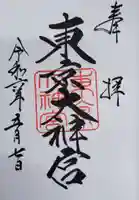 奉拝
東京大神宮
令和六年五月七日